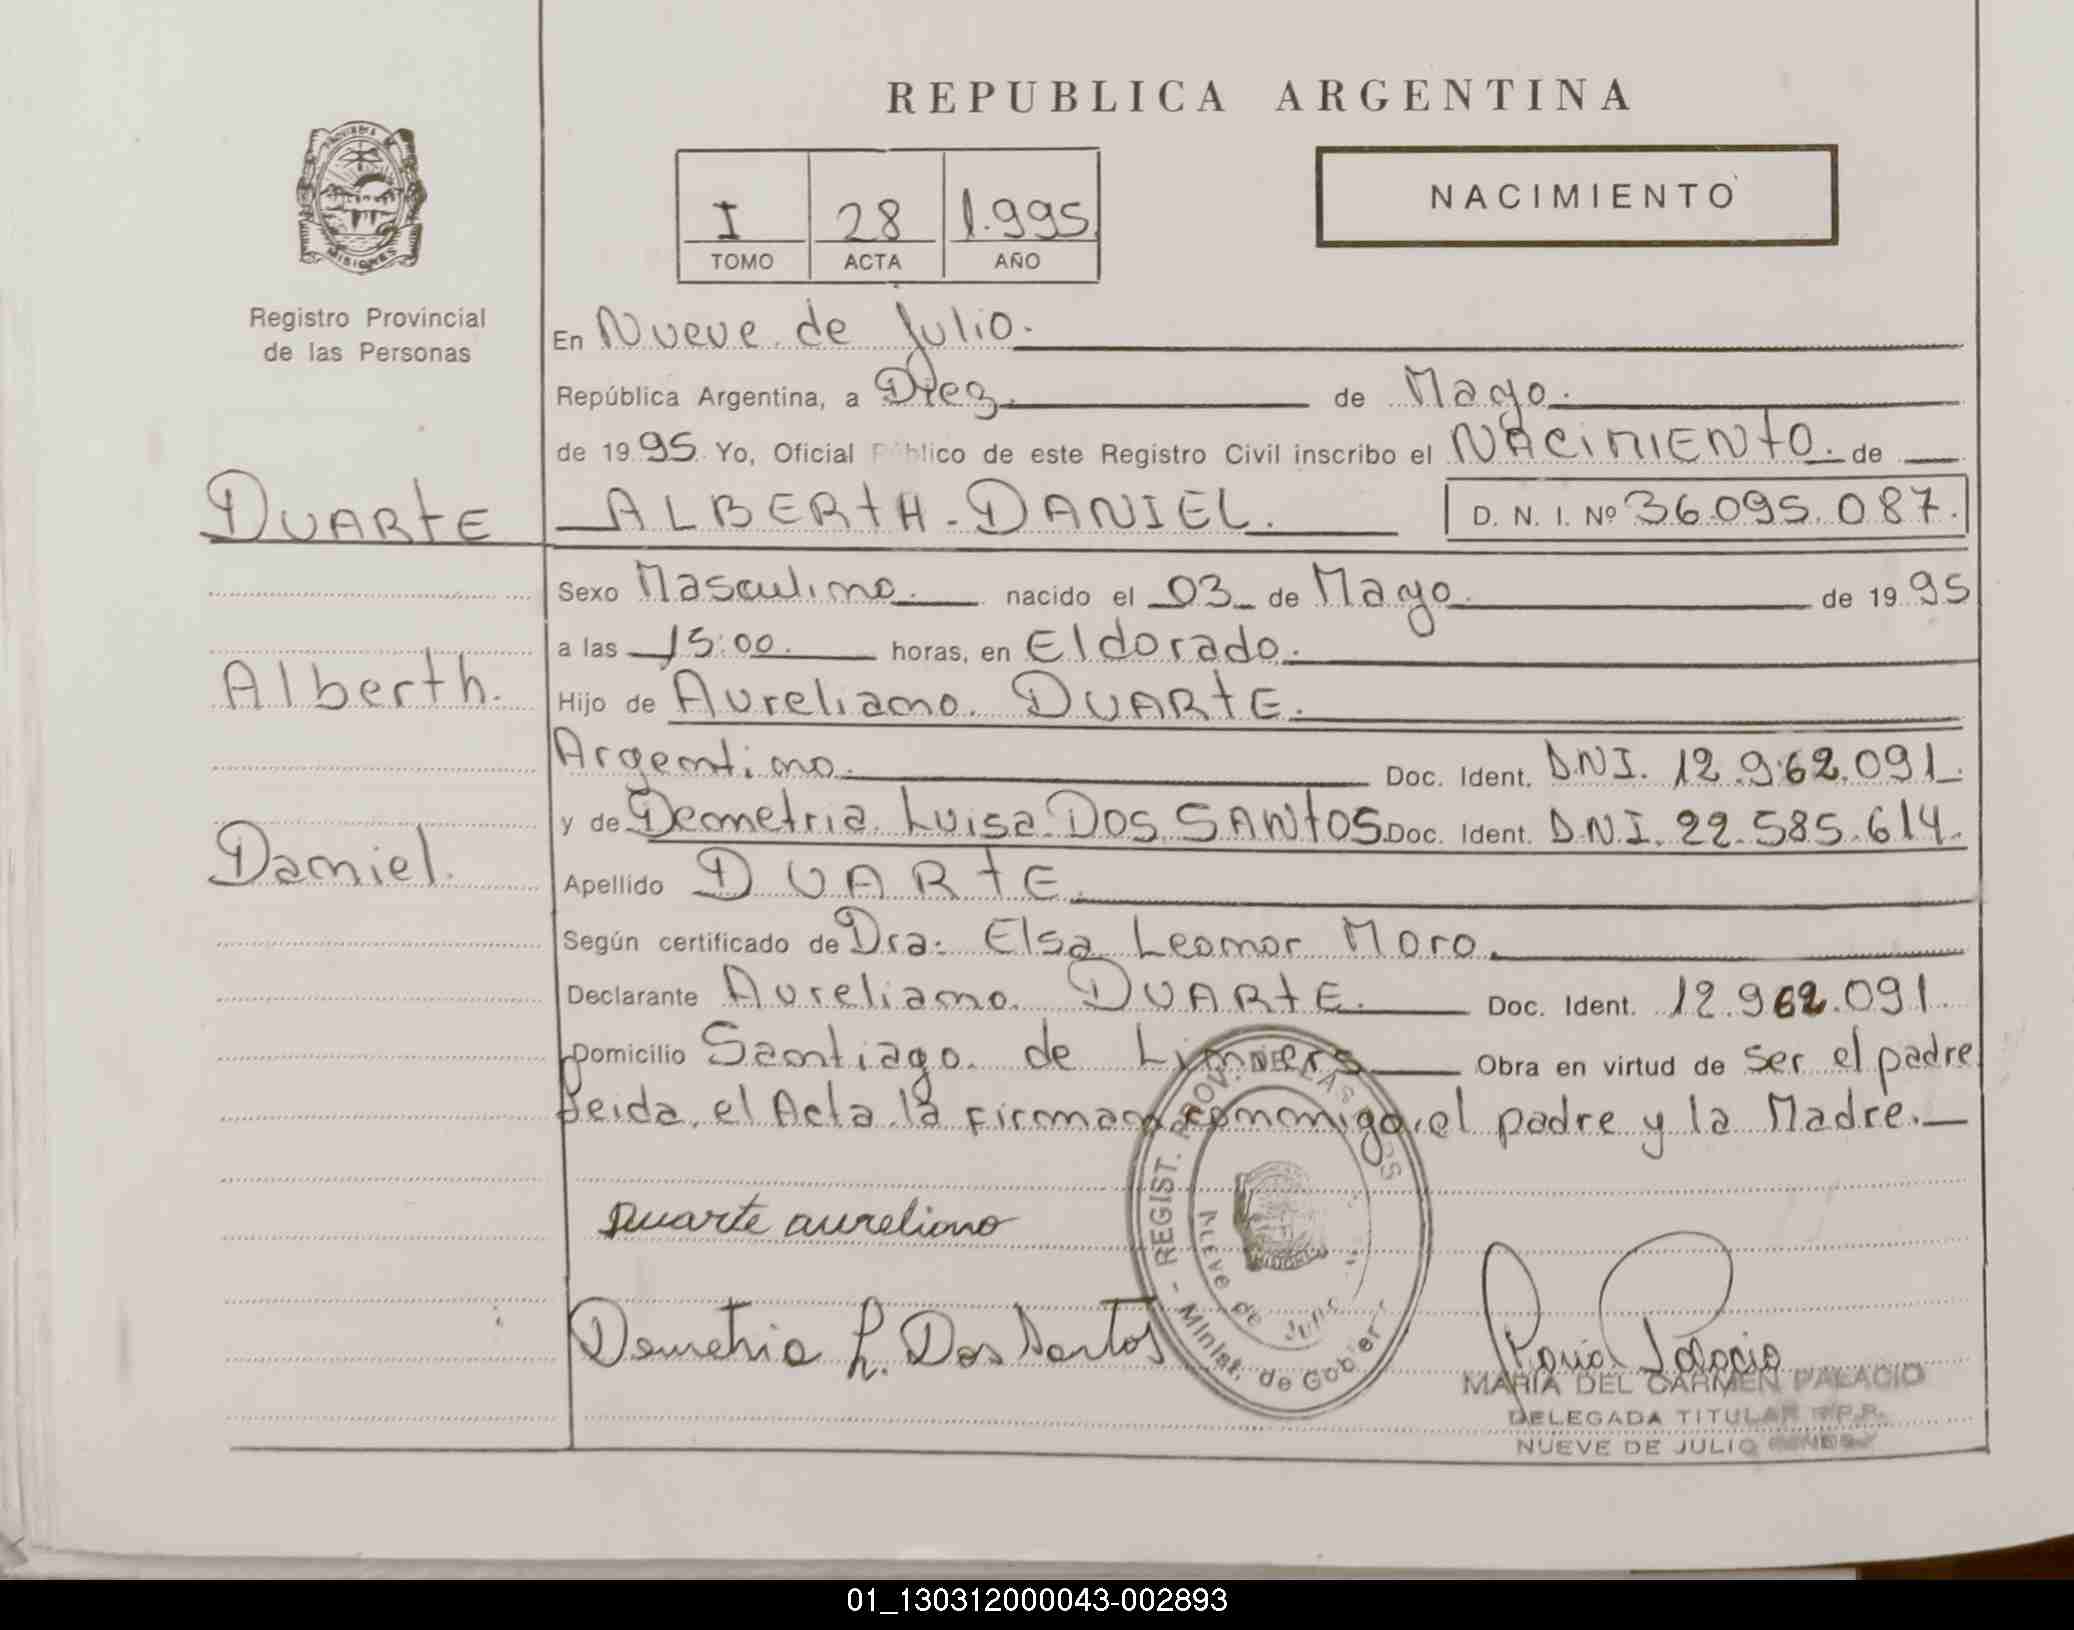 REPUBLICA ARGENTINA
PROVINCIA DE MISIONES
I 28 1.995
TOMO ACTA AÑO
NACIMIENTO
Registro Provincial
de las Personas
DUARTE
Alberth.
Daniel.
En Nueve de Julio.
República Argentina, a Diez. de Mayo.
de 1995 Yo, Oficial Público de este Registro Civil inscribo el NACIMIENTO. de
ALBERTH-DANIEL. D. N. I. Nº 36.095.087.
Sexo Masculino. nacido el 03 de Mayo. de 1995
a las 15:00. horas, en Eldorado.
Hijo de Aureliano. DUARTE.
Argentino. Doc. Ident. D.N.I. 12.962.091.
y de Demetria Luisa DOS SANTOS Doc. Ident. D.N.I. 22.585.614.
Apellido DUARTE.
Según certificado de Dra: Elsa Leonor Moro.
Declarante Aureliano. DUARTE. Doc. Ident. 12.962.091.
Domicilio Santiago de Liniers Obra en virtud de ser el padre
Leida, el Acta la firman conmigo, el padre y la Madre.
Duarte aureliano
Demetria L. Dos Santos
REGIST. PROV. DE LAS PERS
Nueve de Julio
Minist. de Gobier
María Palacio
MARIA DEL CARMEN PALACIO
DELEGADA TITULAR R.P.P.
NUEVE DE JULIO
01_130312000043-002893